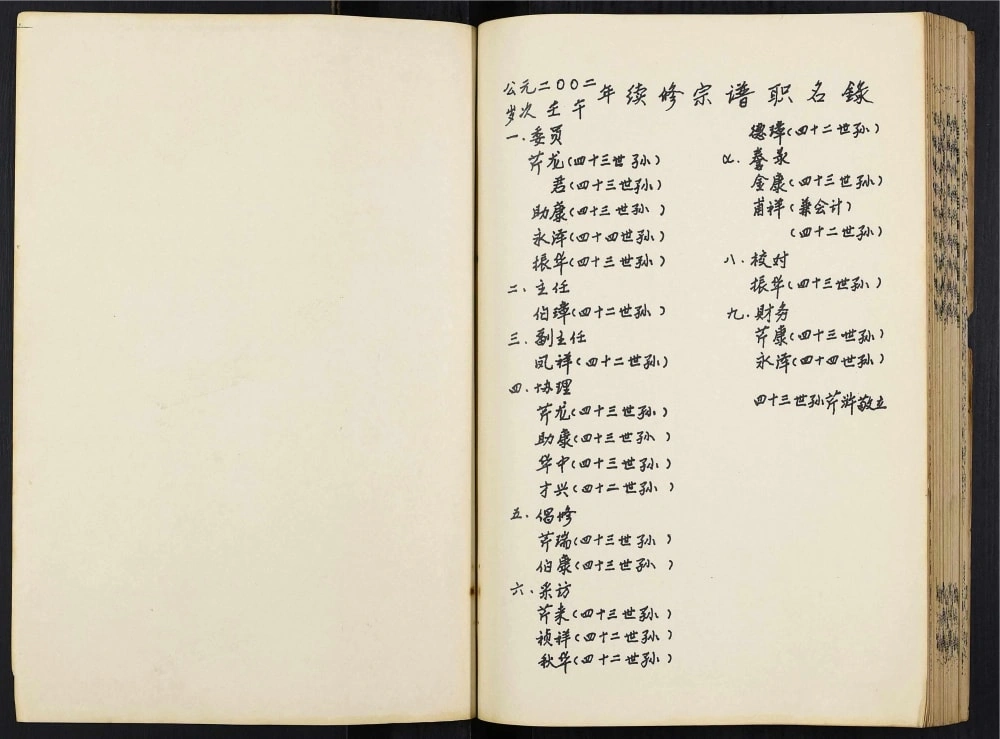 公元二〇〇二
岁次壬午
年续修宗谱职名錄
一.委员
芹龙(四十三世孙)
君(四十三世孙)
助康(四十三世孙)
永泽(四十四世孙)
振华(四十三世孙)
二.主任
伯璋(四十二世孙)
三.副主任
凤祥(四十二世孙)
四.协理
芹龙(四十三世孙)
助康(四十三世孙)
华中(四十三世孙)
才兴(四十二世孙)
五.倡修
芹瑞(四十三世孙)
伯康(四十三世孙)
六.采访
芹来(四十三世孙)
祯祥(四十二世孙)
秋华(四十二世孙)
德璋(四十二世孙)
七.誊录
金康(四十三世孙)
甫祥(兼会计)
(四十二世孙)
八.校对
振华(四十三世孙)
九.财务
芹康(四十三世孙)
永泽(四十四世孙)
四十三世孙芹浒敬立